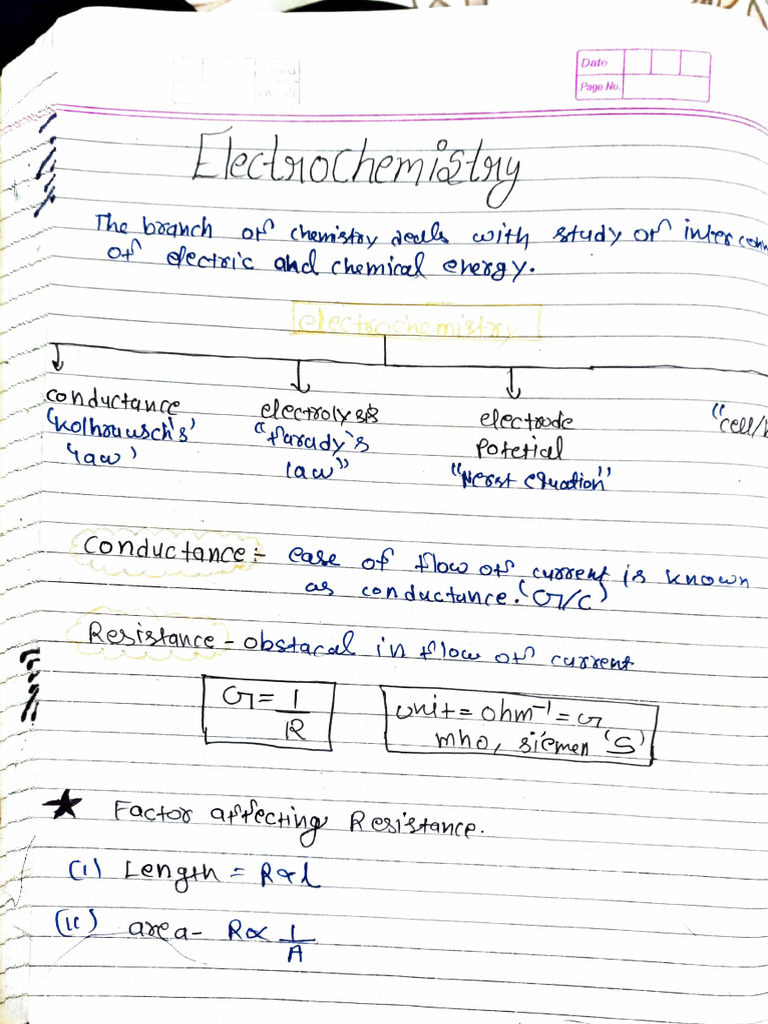 Date
Page No.
Electrochemistry
The branch of chemistry deals with study of inter conn
of electric and chemical energy.
electrochemistry
conductance electrolysis electrode "cell/
"Kolhrausch's' "Farady's Potetial
law' law" "Nerst equation"
Conductance:- ease of flow of current is known
as conductance. (G/C)
Resistance - obstacal in flow of current
G = 1/R unit = ohm⁻¹ = G
mho, siemen 'S'
★ Factor affecting Resistance.
(i) Length = R∝l
(ii) area - R∝ 1/A